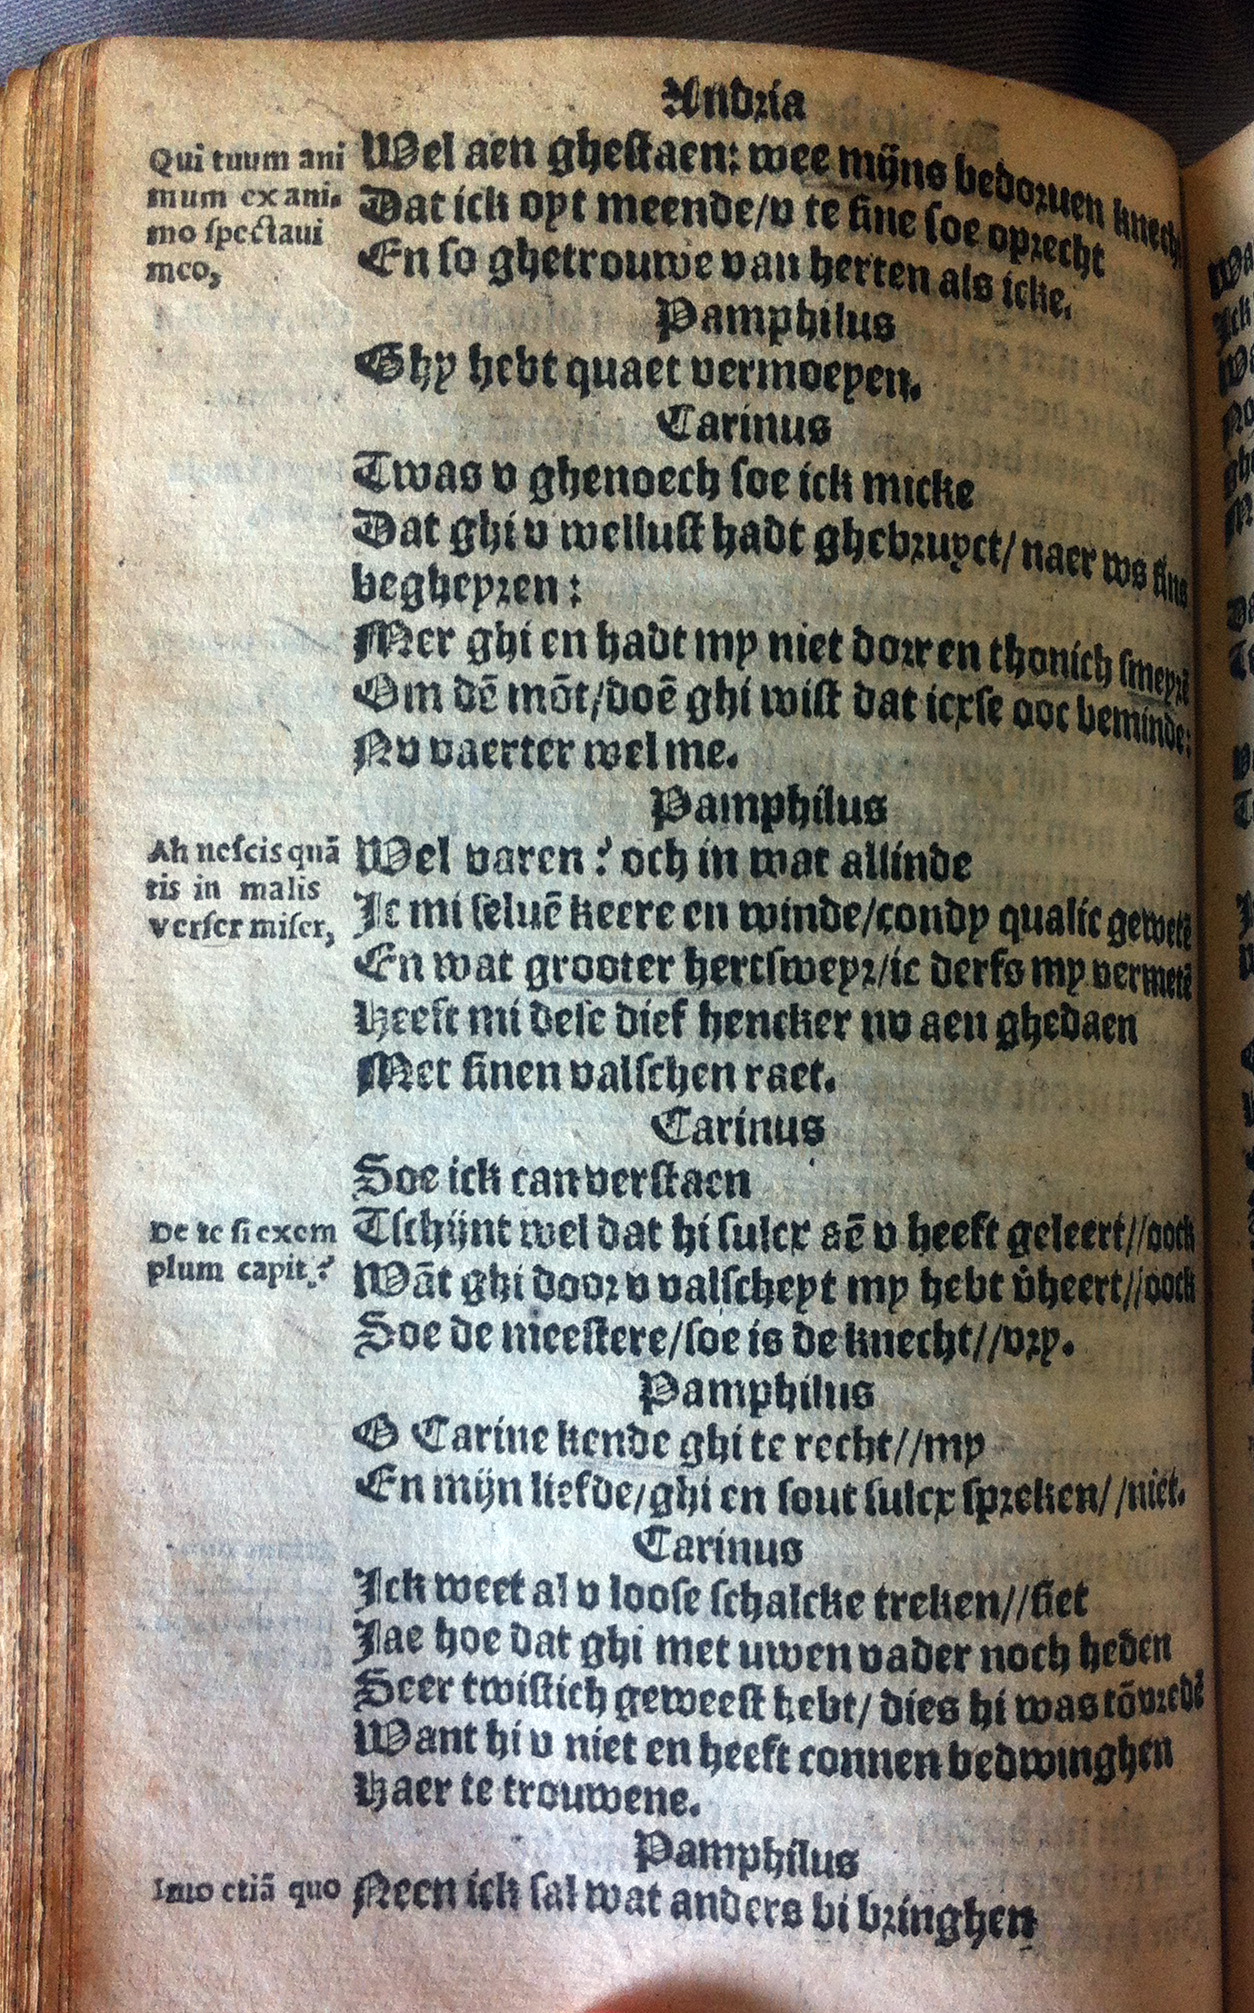 Andria
Qui tuum ani
mum ex ani-
mo spectaui
meo,
Wel aen ghestaen: wee mijns bedoruen knecht
Dat ick oyt meende/v te sine soe oprecht
En so ghetrouwe van herten als icke.
Pamphilus
Ghy hebt quaet vermoeyen.
Carinus
Twas v ghenoech soe ick micke
Dat ghi v wellust hadt ghebruyct/ naer ws sins
begheyren:
Mer ghi en hadt my niet dorren thonich smeyrē
Om dē mōt/doē ghi wist dat icxse ooc beminde:
Nv vaerter wel me.
Pamphilus
Ah nescis quā
tis in malis
verser miser,
Wel varen? och in wat allinde
Ic mi seluē keere en winde/condy qualic gewetē
En wat grooter hertsweyr/ic derfs my vermetē
Heeft mi dese dief hencker nv aen ghedaen
Met sinen valschen raet.
Carinus
Soe ick can verstaen
De te si exem
plum capit?
Tschijnt wel dat hi sulcx aē v heeft geleert//oock
Wāt ghi door v valscheyt my hebt v̄heert//oock
Soe de meestere/soe is de knecht//vry.
Pamphilus
O Carine kende ghi te recht//my
En mijn liefde/ghi en sout sulcx spreken//niet.
Carinus
Ick weet al v loose schalcke treken//siet
Jae hoe dat ghi met uwen vader noch heden
Seer twistich geweest hebt/ dies hi was tōvredē
Want hi v niet en heeft connen bedwinghen
Haer te trouwene.
Pamphilus
Imo etiā quo
Neen ick sal wat anders bi bringhen